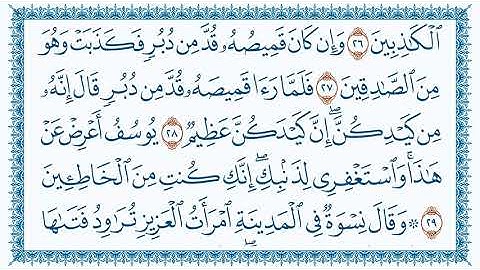 ٱلۡكَٰذِبِينَ ٢٦ وَإِن كَانَ قَمِيصُهُۥ قُدَّ مِن دُبُرٖ فَكَذَبَتۡ وَهُوَ
مِنَ ٱلصَّٰدِقِينَ ٢٧ فَلَمَّا رَءَا قَمِيصَهُۥ قُدَّ مِن دُبُرٖ قَالَ إِنَّهُۥ
مِن كَيۡدِكُنَّۖ إِنَّ كَيۡدَكُنَّ عَظِيمٞ ٢٨ يُوسُفُ أَعۡرِضۡ عَنۡ
هَٰذَاۚ وَٱسۡتَغۡفِرِي لِذَنۢبِكِۖ إِنَّكِ كُنتِ مِنَ ٱلۡخَاطِـِٔينَ
٢٩ ۞ وَقَالَ نِسۡوَةٞ فِي ٱلۡمَدِينَةِ ٱمۡرَأَتُ ٱلۡعَزِيزِ تُرَٰوِدُ فَتَىٰهَا